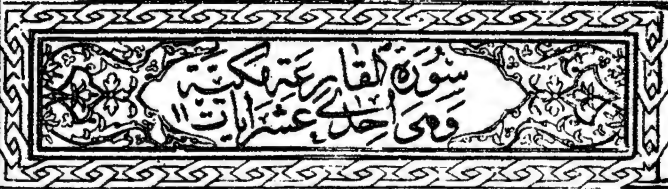 سُورَةُ الْقَارِعَةِ مَكِّيَّة
وَهِيَ اِحْدٰى عَشَرَ اٰيَات ١١